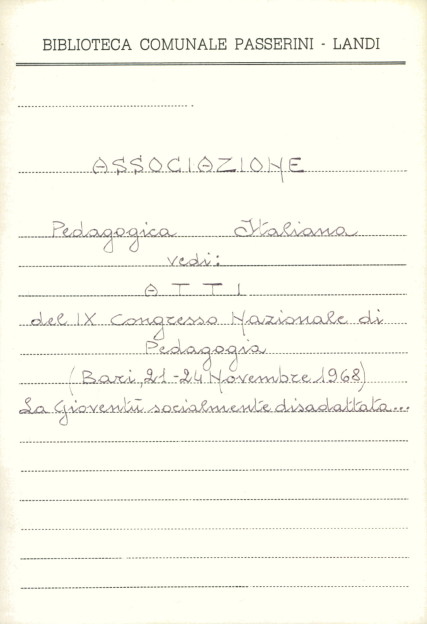 BIBLIOTECA COMUNALE PASSERINI - LANDI
ASSOCIAZIONE
Pedagogica Italiana
vedi:
ATTI
del IX Congresso Nazionale di
Pedagogia
(Bari, 21-24 Novembre 1968)
La Gioventù socialmente disadattata...